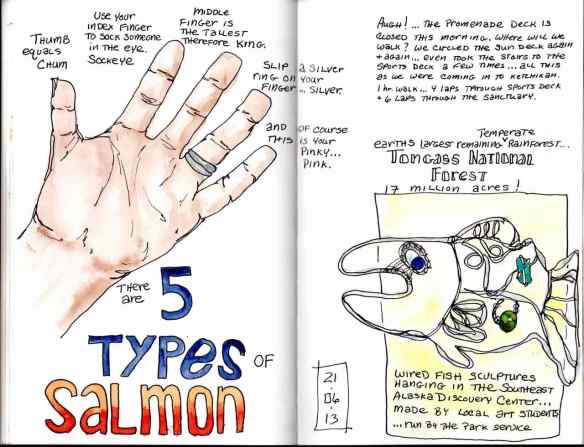 Thumb
equals
Chum
Use your
index finger
to sock someone
in the eye.
Sockeye
Middle
Finger is
the tallest
therefore King.
Slip a silver
ring on your
finger... silver.
and of course
this is your
pinky...
Pink.
There
are 5
Types of
Salmon
Augh! ... The Promenade Deck is
closed this morning. Where will we
walk? We circled the Sun Deck again
+ again... even took the stairs to the
Sports Deck a few times... all this
as we were coming in to Ketchikan.
1 hr walk... 4 laps through Sports Deck
+ 6 laps through the Sanctuary.
Temperate
earths largest remaining ^ rainforest...
Tongass National
Forest
17 million acres!
Wired fish sculptures
hanging in the Southeast
Alaska Discovery Center...
made by local art students
... run by the Park Service
21
06
13